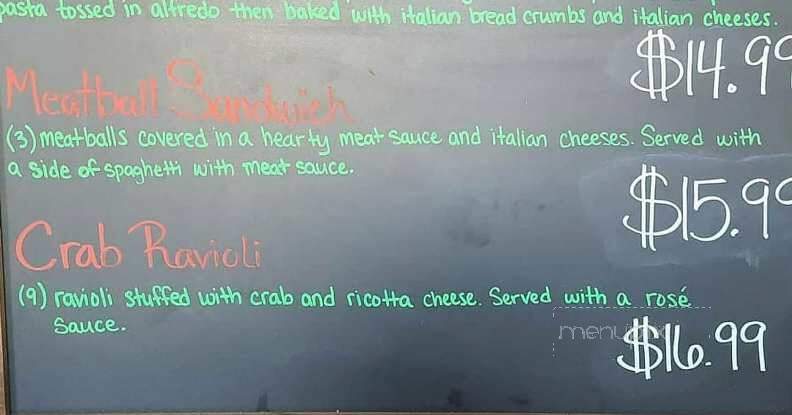 pasta tossed in alfredo then baked with italian bread crumbs and italian cheeses.
$14.99
Meatball Sandwich
(3) meatballs covered in a hearty meat sauce and italian cheeses. Served with
a side of spaghetti with meat sauce.
$15.99
Crab Ravioli
(9) ravioli stuffed with crab and ricotta cheese. Served with a rosé
sauce.
$16.99